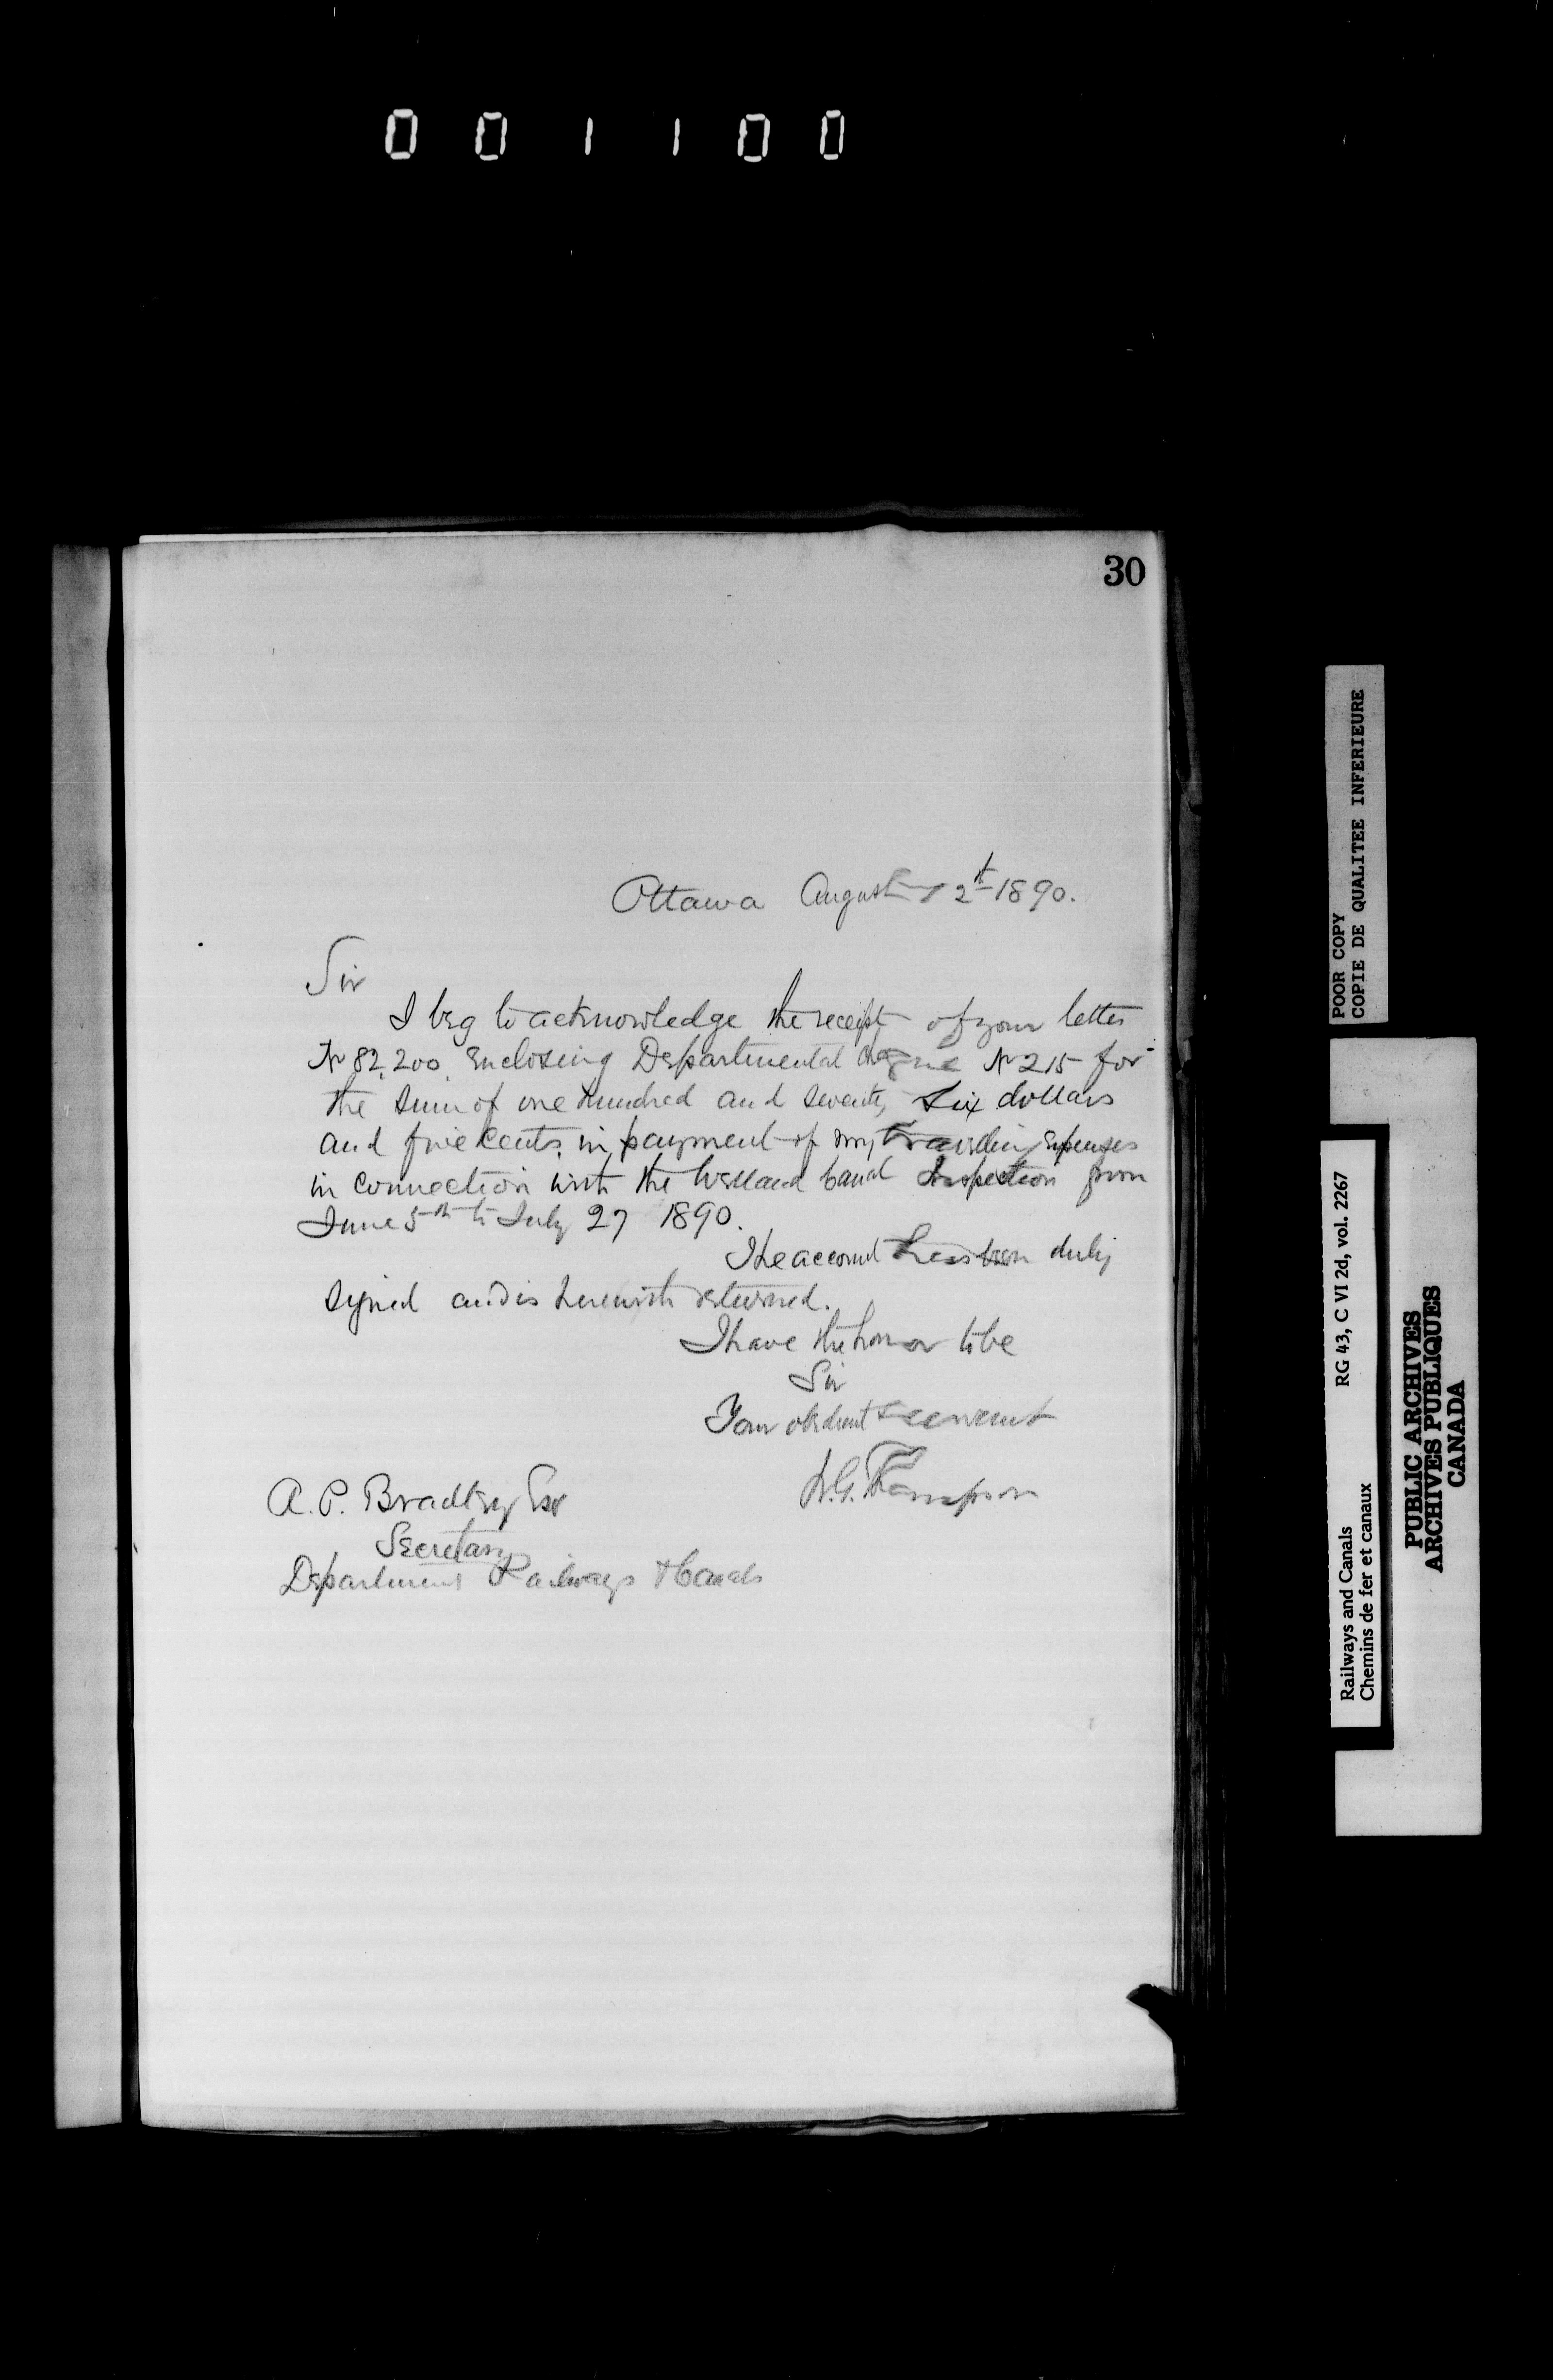 001100
30
Ottawa August 12th 1890.
Sir
I beg to acknowledge the receipt of your letter
No 82,200 enclosing Departmental cheque No 215 for
the sum of one hundred and seventy six dollars
and five cents, in payment of my travelling expenses
in connection with the Welland Canal Inspection from
June 5th to July 27 1890.
The account has been duly
signed and is herewith returned.
I have the honor to be
Sir
Your obedient servant
Thompson
A. P. Bradley Esq
Secretary
Department Railways & Canals
POOR COPY
COPIE DE QUALITEE INFERIEURE
Railways and Canals RG 43, C VI 2d, vol. 2267
Chemins de fer et canaux
PUBLIC ARCHIVES
ARCHIVES PUBLIQUES
CANADA